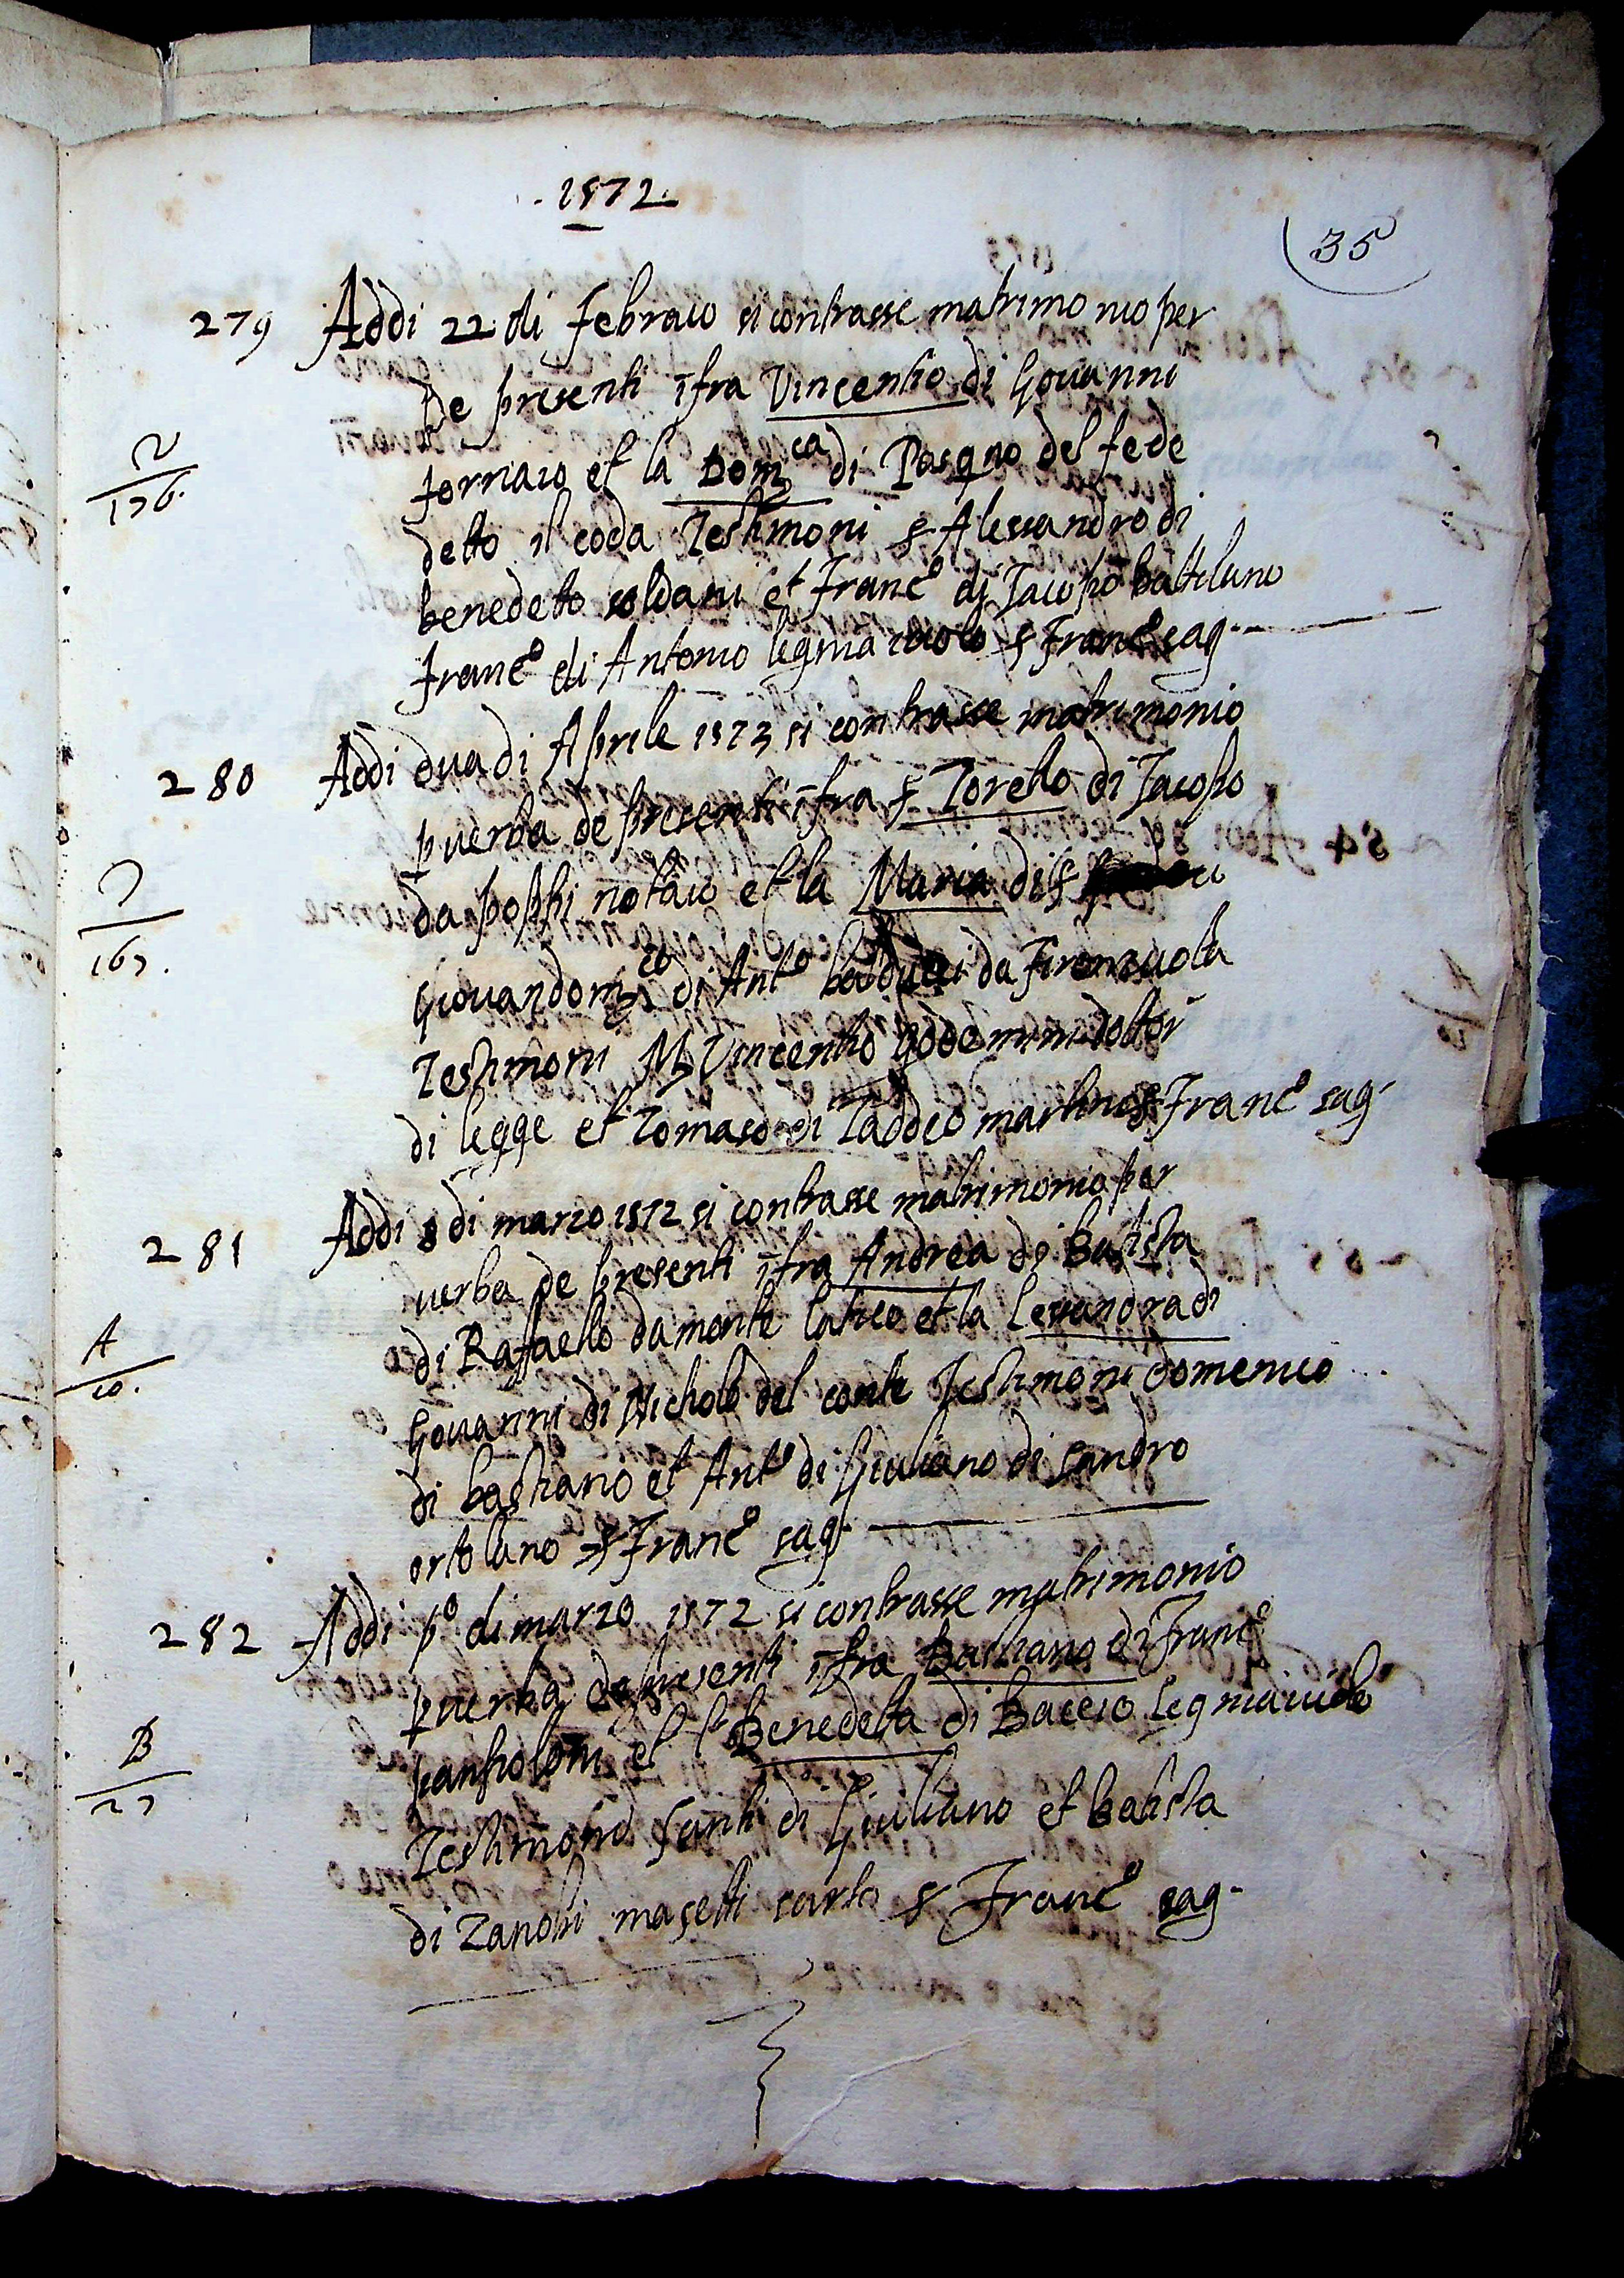 .1572.
35
279 Addi 22 di febraio si contrasse matrimonio per
de presenti īfra Vincentio di Giovanni
V
176.
fornaio et la Dom.ca di Pasq.no del fede
detto il coda Testimoni s Alessandro di
benedetto soldani et Franc.o di Jacopo battiluno
Franc.o di Antonio legnia iuolo s Franc.o sag.
280 Addi dua di Aprile 1573 si contrasse matrimonio
p uerba de presenti īfra s Torello di Jacopo
da poppi notaio et la Maria di s
167.
Giouandom.co di Ant.o da Firenzuola
Testimoni M Vincentio dottor
di legge et Tomaso di Taddeo martini s Franc.o sag.
281 Addi 8 di marzo 1572 si contrasse matrimonio per
uerba de presenti īfra Andrea di Batista
A
10.
di Raffaello da monte latico et la Lessandra di
Giouanni di Nicholò del conte Testimoni domenico
di bastiano et Ant.o di Giuliano di Sandro
ortolano s Franc.o sag.
282 Addi p.o di marzo 1572 si contrasse matrimonio
p uerba de presenti īfra Bastiano di Franc.o
B
27
et la Benedetta di Baccio legniaiuolo
Testimoni Santi di Giuliano et Batista
di Zanobi masetti sarto s Franc.o sag.